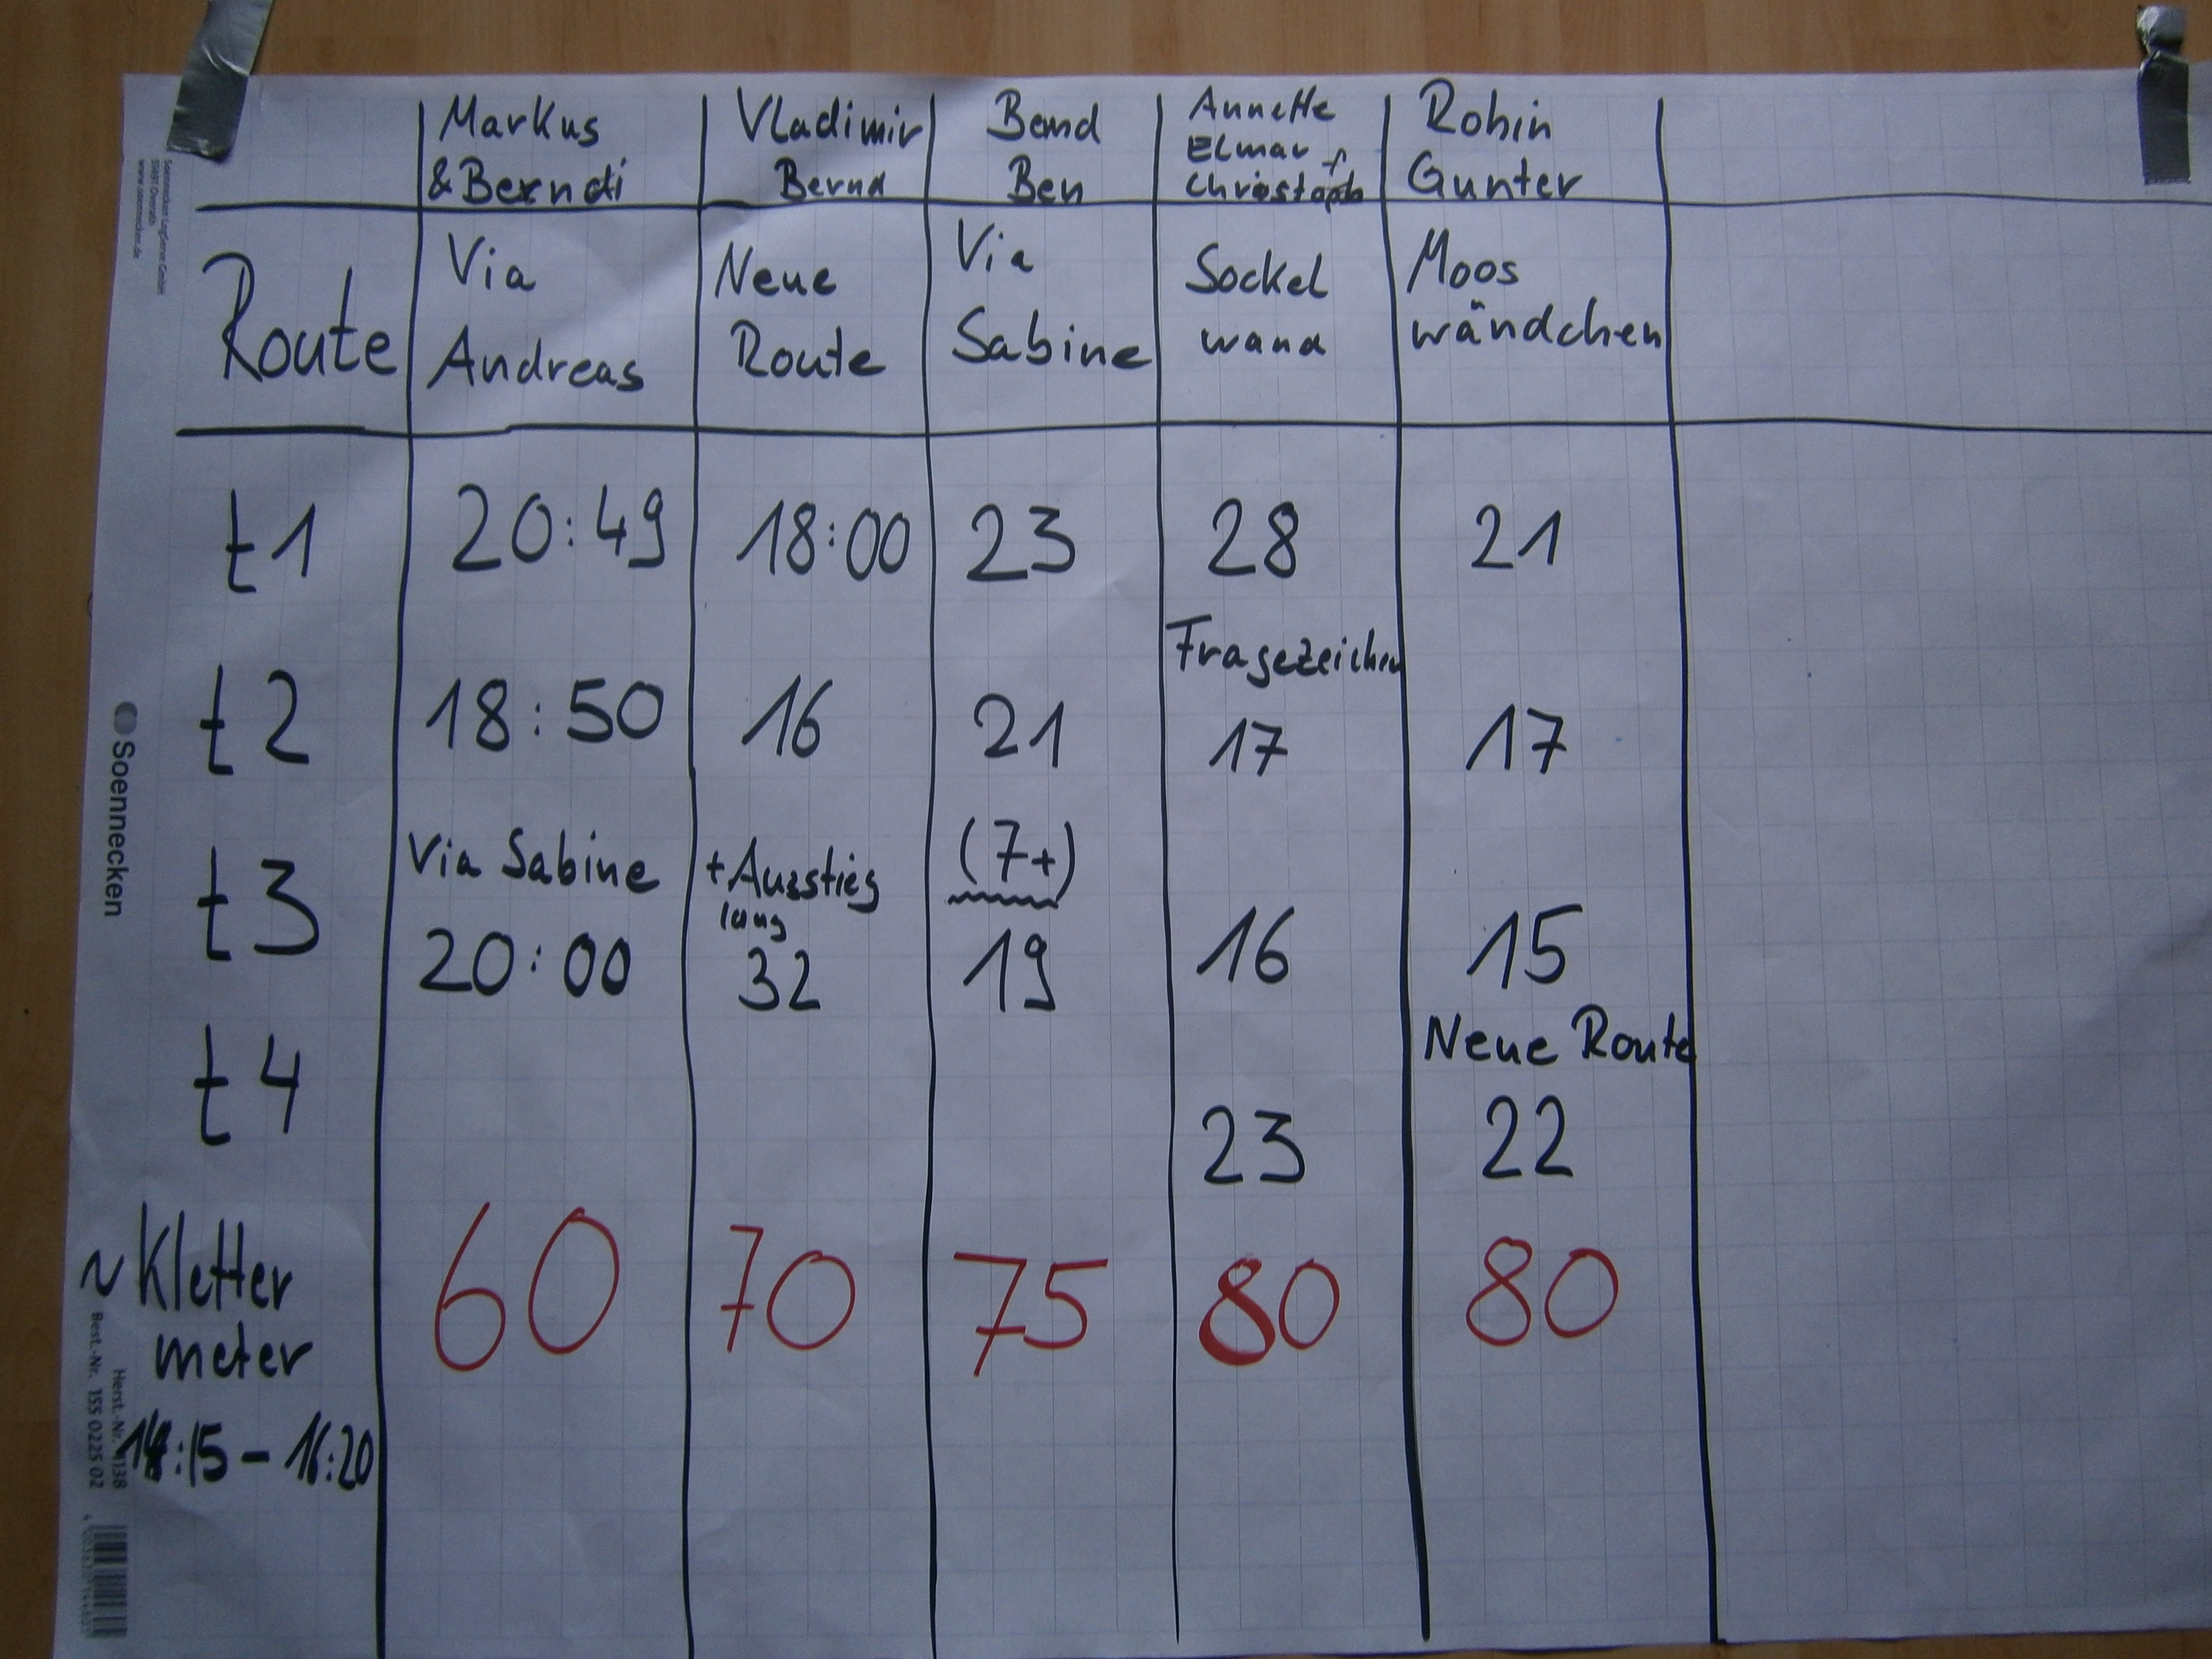 Markus
& Berndi
Vladimir
Bernd
Bernd
Ben
Annette
Elmar +
Christoph
Robin
Gunter
Route
Via
Andreas
Neue
Route
Via
Sabine
Sockel
wand
Moos
wändchen
t1 20:49 18:00 23 28 21
Fragezeichen
t2 18:50 16 21 17 17
t3
Via Sabine
20:00
+ Ausstieg
lang
32
(7+)
19
16
15
Neue Route
t4 23 22
~ Kletter
meter
60 70 75 80 80
14:15 - 16:20
Soennecken
Best.-Nr. 155 0225 02
Soennecken LogServe GmbH
51491 Overath
www.soennecken.de